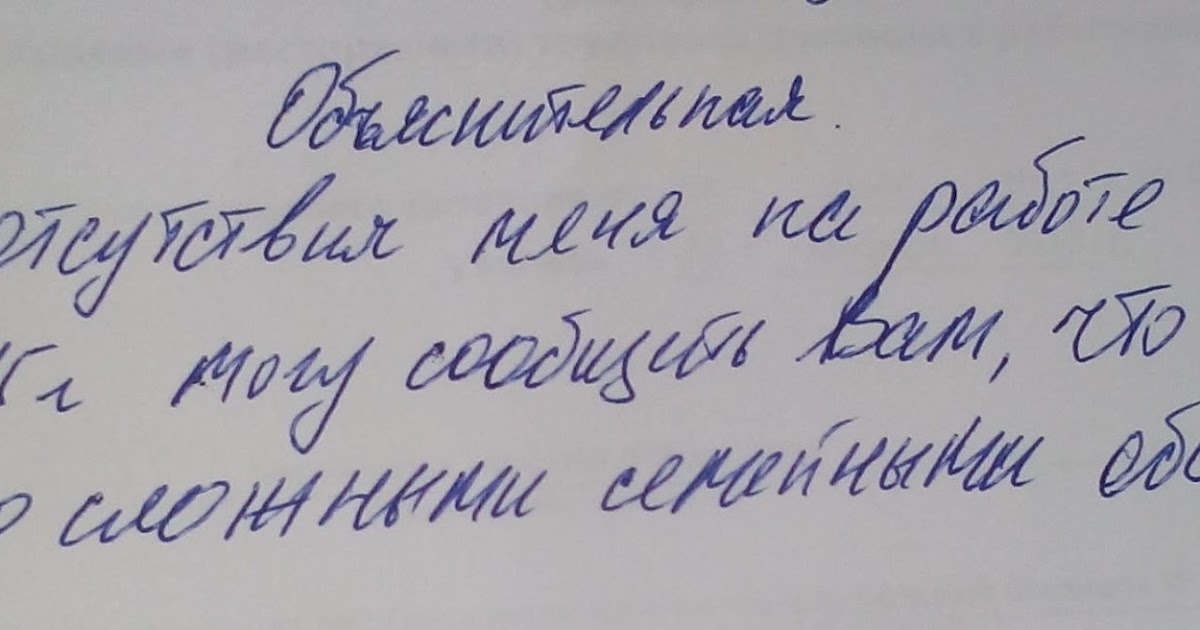 Объяснительная.
отсутствия меня на работе
5г могу сообщить Вам, что
о сложными семейными обс